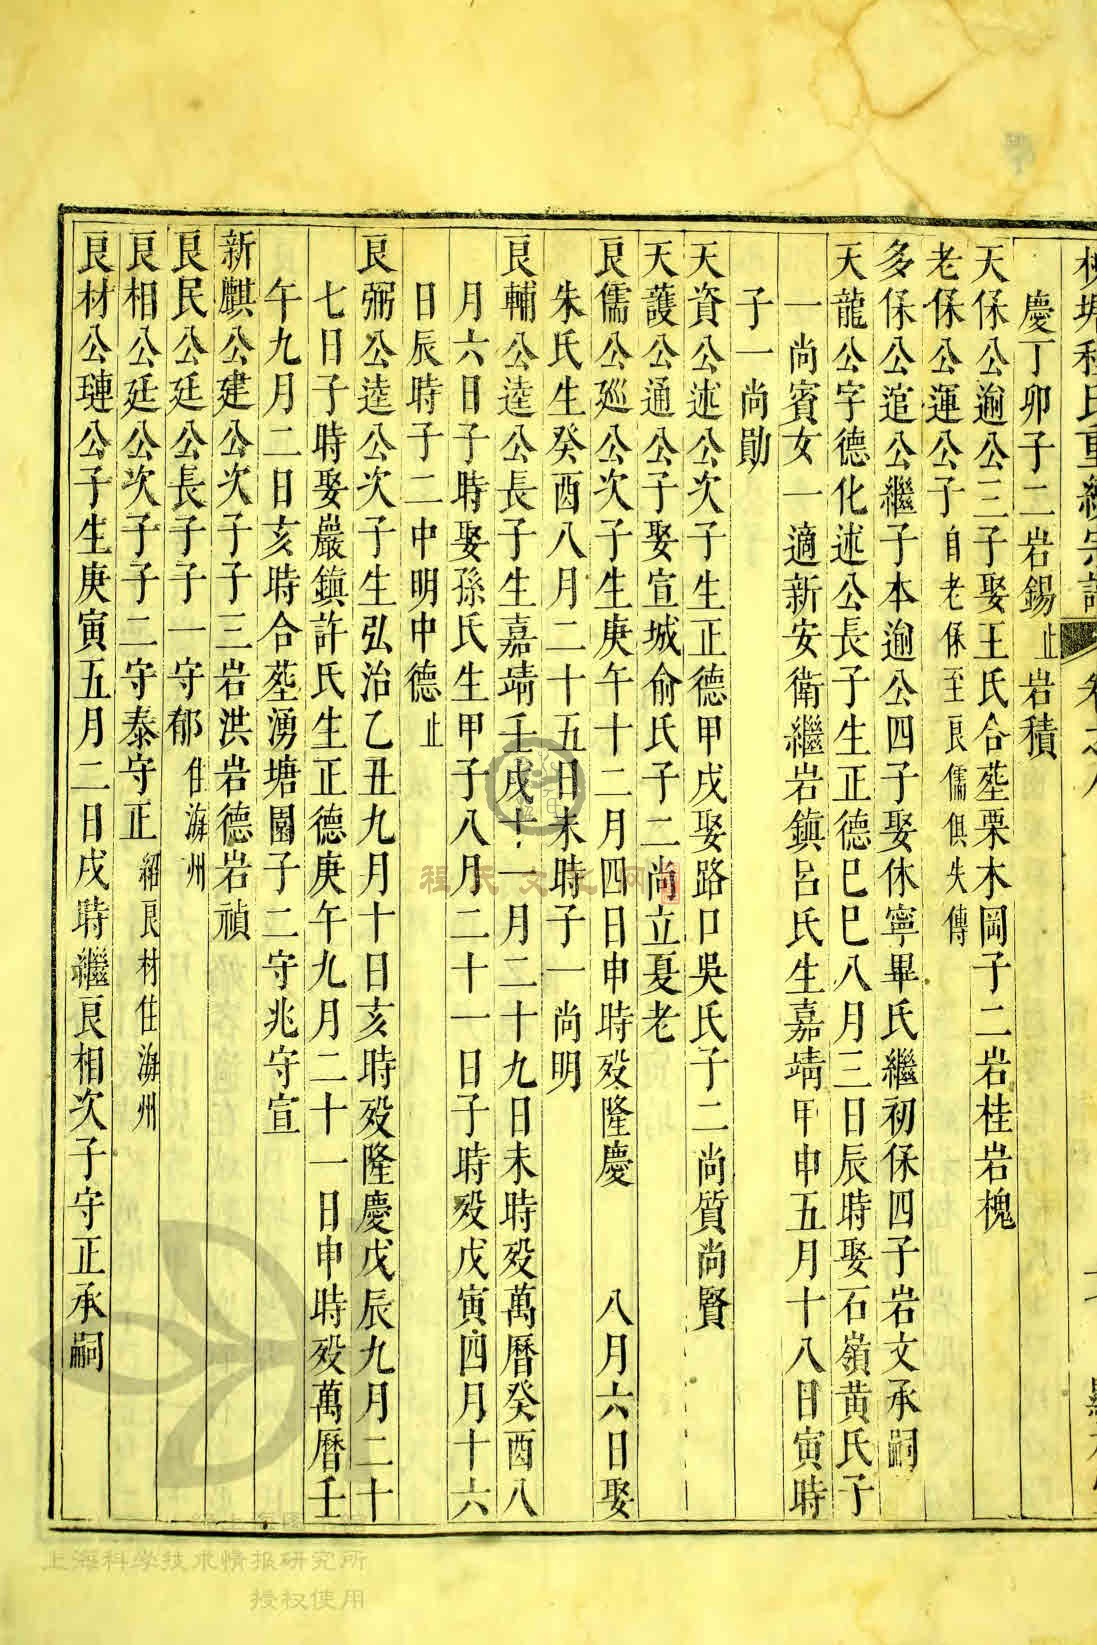 慶丁卯子二岩錫止岩積
天保公逈公三子娶王氏合塟栗木岡子二岩桂岩槐
老保公運公子自老保至良儒俱失傳
多保公逭公繼子本逈公四子娶休寧畢氏繼初保四子岩文承嗣
天龍公字德化述公長子生正德巳巳八月三日辰時娶石嶺黄氏子
一尚賓女一適新安衛繼岩鎮呂氏生嘉靖甲申五月十八日寅時
子一尚勛
天資公述公次子生正德甲戌娶路口吳氏子二尚質尚賢
天護公通公子娶宣城俞氏子二尚立夏老
良儒公廵公次子生庚午十二月四日申時殁隆慶 八月六日娶
朱氏生癸酉八月二十五日未時子一尚明
良輔公逵公長子生嘉靖壬戌十一月二十九日未時殁萬曆癸酉八
月六日子時娶孫氏生甲子八月二十一日子時殁戊寅四月十六
日辰時子二中明中德止
良弼公逵公次子生弘治乙丑九月十日亥時殁隆慶戊辰九月二十
七日子時娶巖鎮許氏生正德庚午九月二十一日申時殁萬曆壬
午九月二日亥時合塟湧塘園子二守兆守宣
新麒公建公次子子三岩洪岩德岩禎
良民公廷公長子子一守郁住㴑州
良相公廷公次子子二守泰守正紹良材住㴑州
良材公璉公子生庚寅五月二日戌時繼良相次子守正承嗣
程氏文献网
上海科学技术情报研究所
授权使用